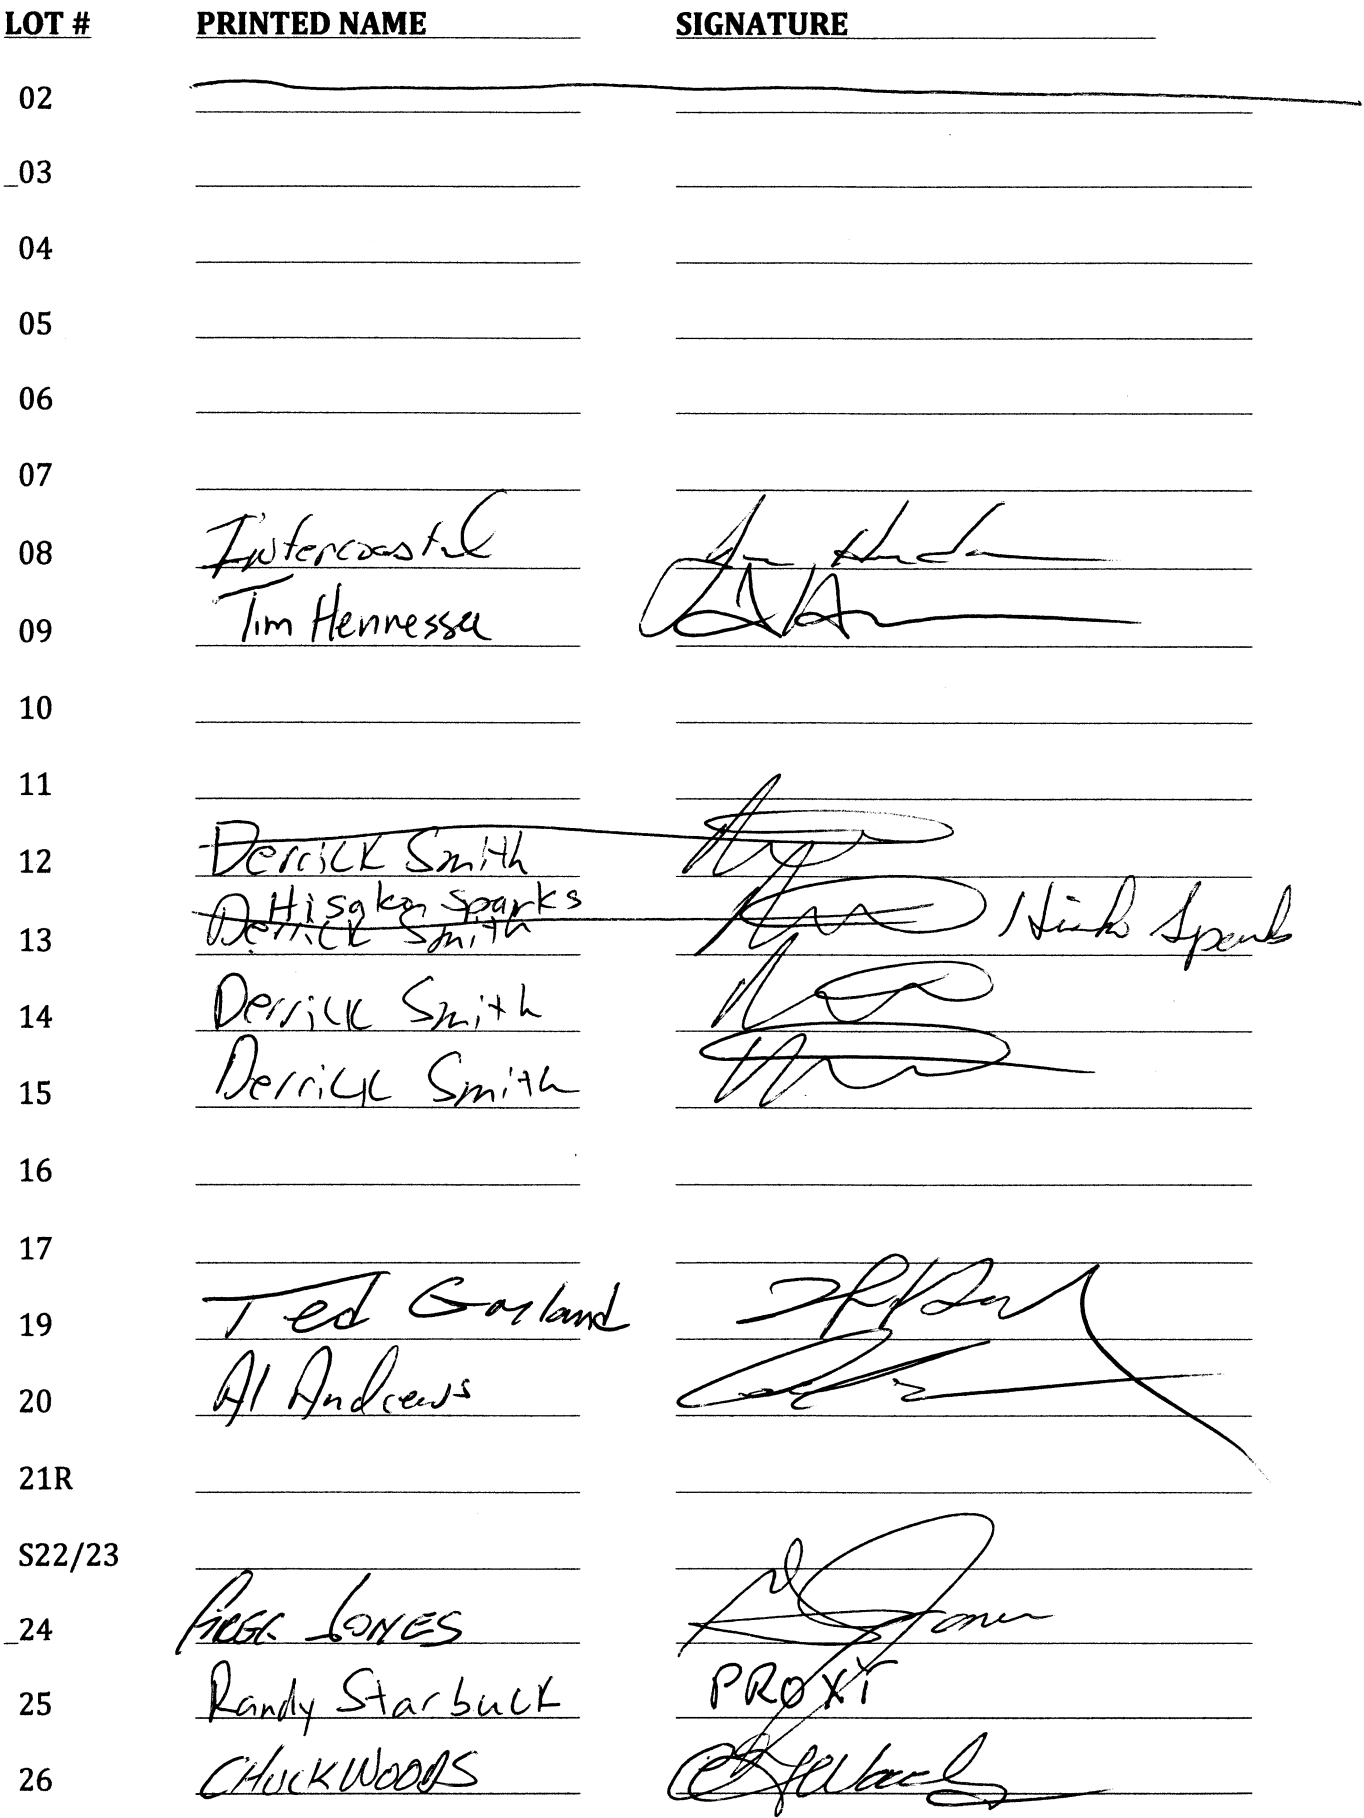 LOT # PRINTED NAME SIGNATURE
02
_03
04
05
06
07
08 Intercoastal
09 Tim Hennessee
10
11
12 Derrick Smith
Hisako Sparks
13 Derrick Smith
14 Derrick Smith
15 Derrick Smith
16
17
19 Ted Garland
20 Al Andrews
21R
S22/23
_24 GREGG JONES Jones
25 Randy Starbuck PROXY
26 CHUCK WOODS